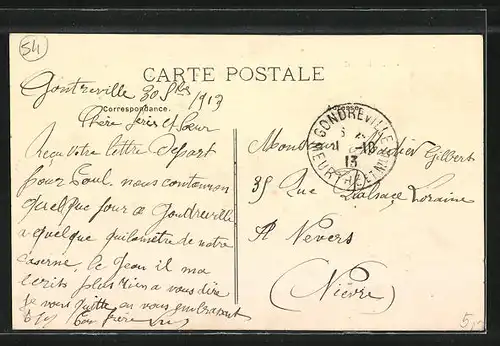 54
CARTE POSTALE
Gontreville 30 Sbre 1913
Correspondance.
Adresse
Chère frris et Sœur
Reçu votre lettre depart
pour Paul, nous continuon
quelque jour a Gondreville
a quelque quilometre de notre
caserne, le Jean il ma
ecrits plus rien a vous dire
je vous quitte en vous embrassant
Ton frère
GONDREVILLE
1-10
13
MEURTHE-ET-M
Monsieur Gilbert
35 Rue Dalsace Loraine
A Nevers
(Nièvre)